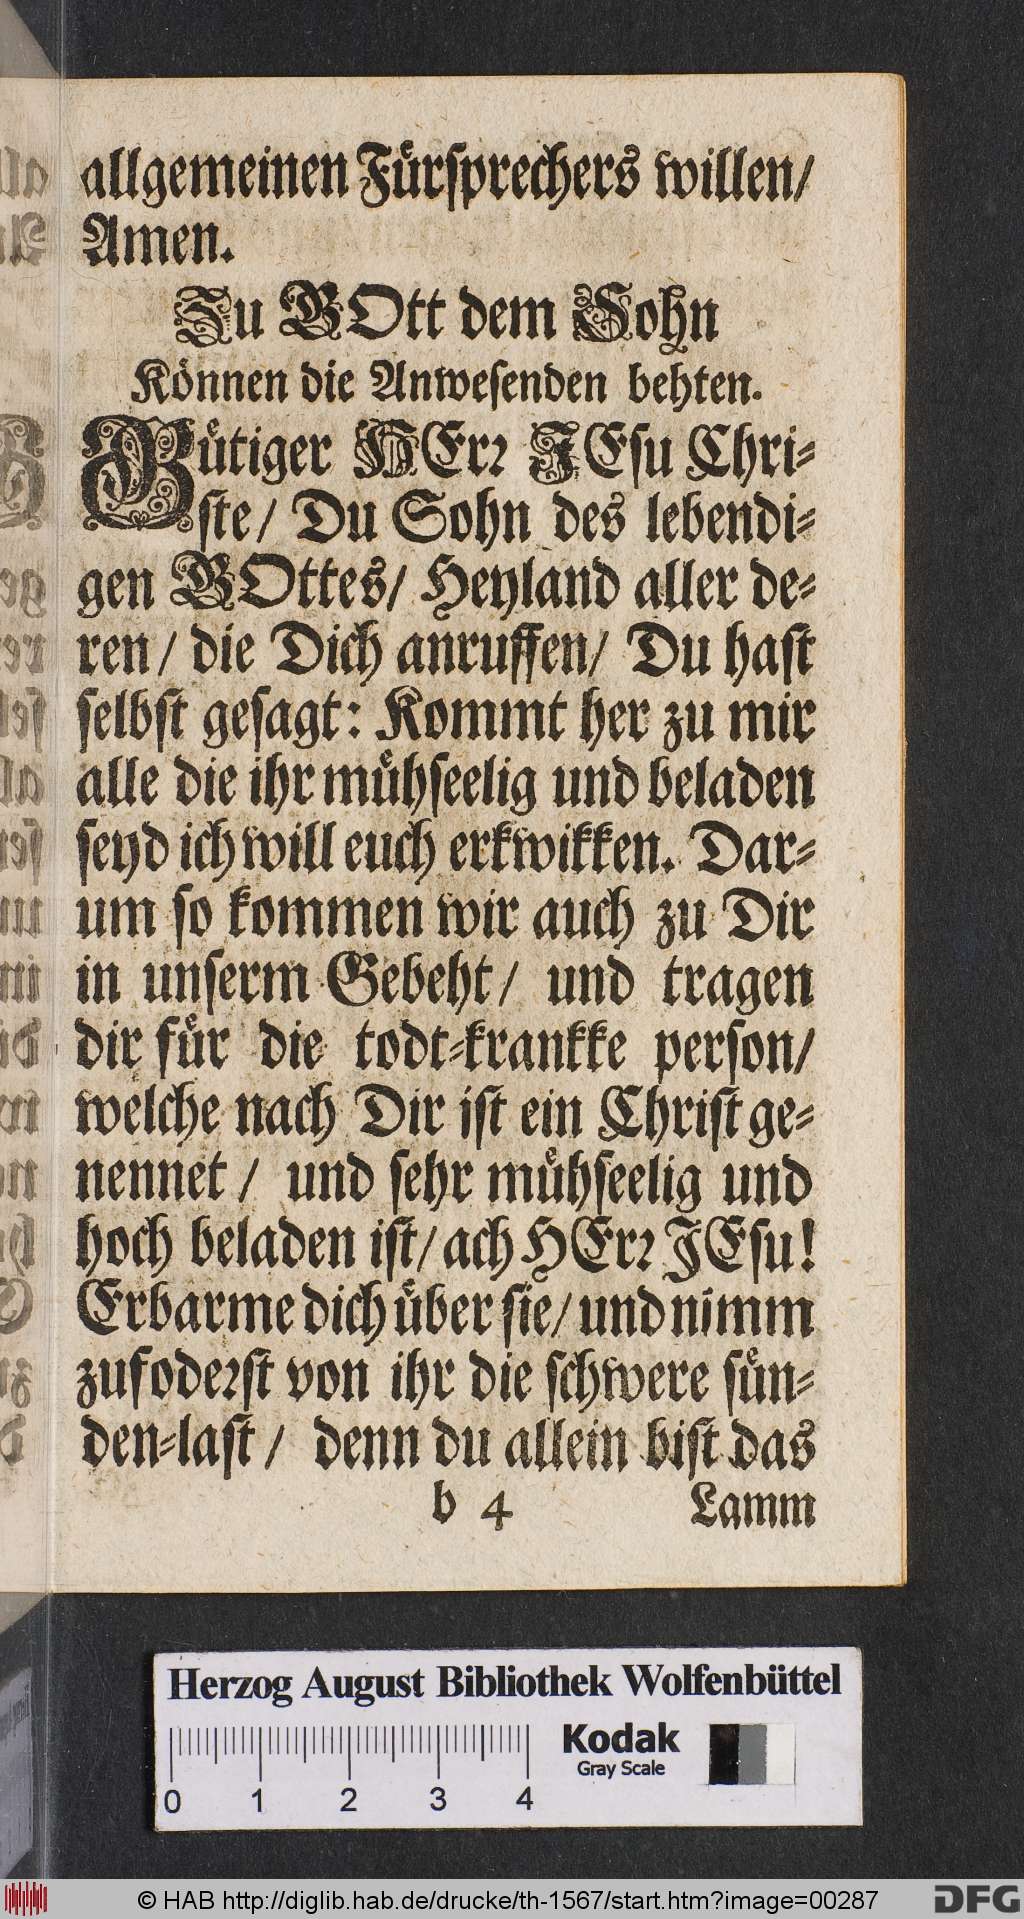 allgemeinen Fuͤrſprechers willen/
Amen.
Zu GOtt dem Sohn
Können die Anweſenden behten.
Guͤtiger HErꝛ JEſu Chri⸗
ſte/ Du Sohn des lebendi⸗
gen GOttes/ Heyland aller de⸗
ren/ die Dich anruffen/ Du haſt
ſelbſt geſagt: Kommt her zu mir
alle die ihr muͤhſeelig und beladen
ſeyd ich will euch erkwikken. Dar⸗
um ſo kommen wir auch zu Dir
in unſerm Gebeht/ und tragen
dir fuͤr die todt⸗krankke perſon/
welche nach Dir iſt ein Chriſt ge⸗
nennet/ und ſehr muͤhſeelig und
hoch beladen iſt/ ach HErꝛ JEſu!
Erbarme dich uͤber ſie/ und nimm
zufodeꝛſt von ihr die ſchwere ſuͤn⸗
den⸗laſt/ denn du allein biſt das
b 4 Lamm
Herzog August Bibliothek Wolfenbüttel
Kodak
Gray Scale
0 1 2 3 4
© HAB http://diglib.hab.de/drucke/th-1567/start.htm?image=00287
DFG